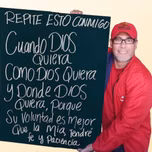 REPITE ESTO CONMIGO
Cuando DIOS
Quiera
Como DIOS Quiera
y Donde DIOS
Quiera, Porque
Su Voluntad es Mejor
Que la Mía, Tendré
fe y Paciencia